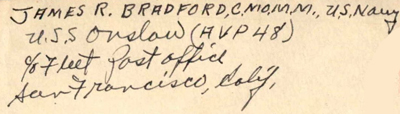 JAMES R. BRADFORD, C.MO.M.M., U.S. Navy
U.S.S Onslow (AVP 48)
c/o Fleet Post Office
San Francisco, Calif,